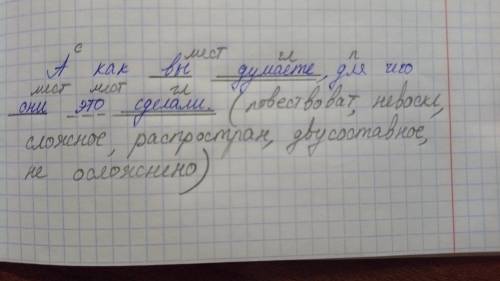 с мест гл п
А как вы думаете, для чего
мест мест гл
они это сделали. (повествоват, невоскл,
сложное, распростран, двусоставное,
не осложнено)